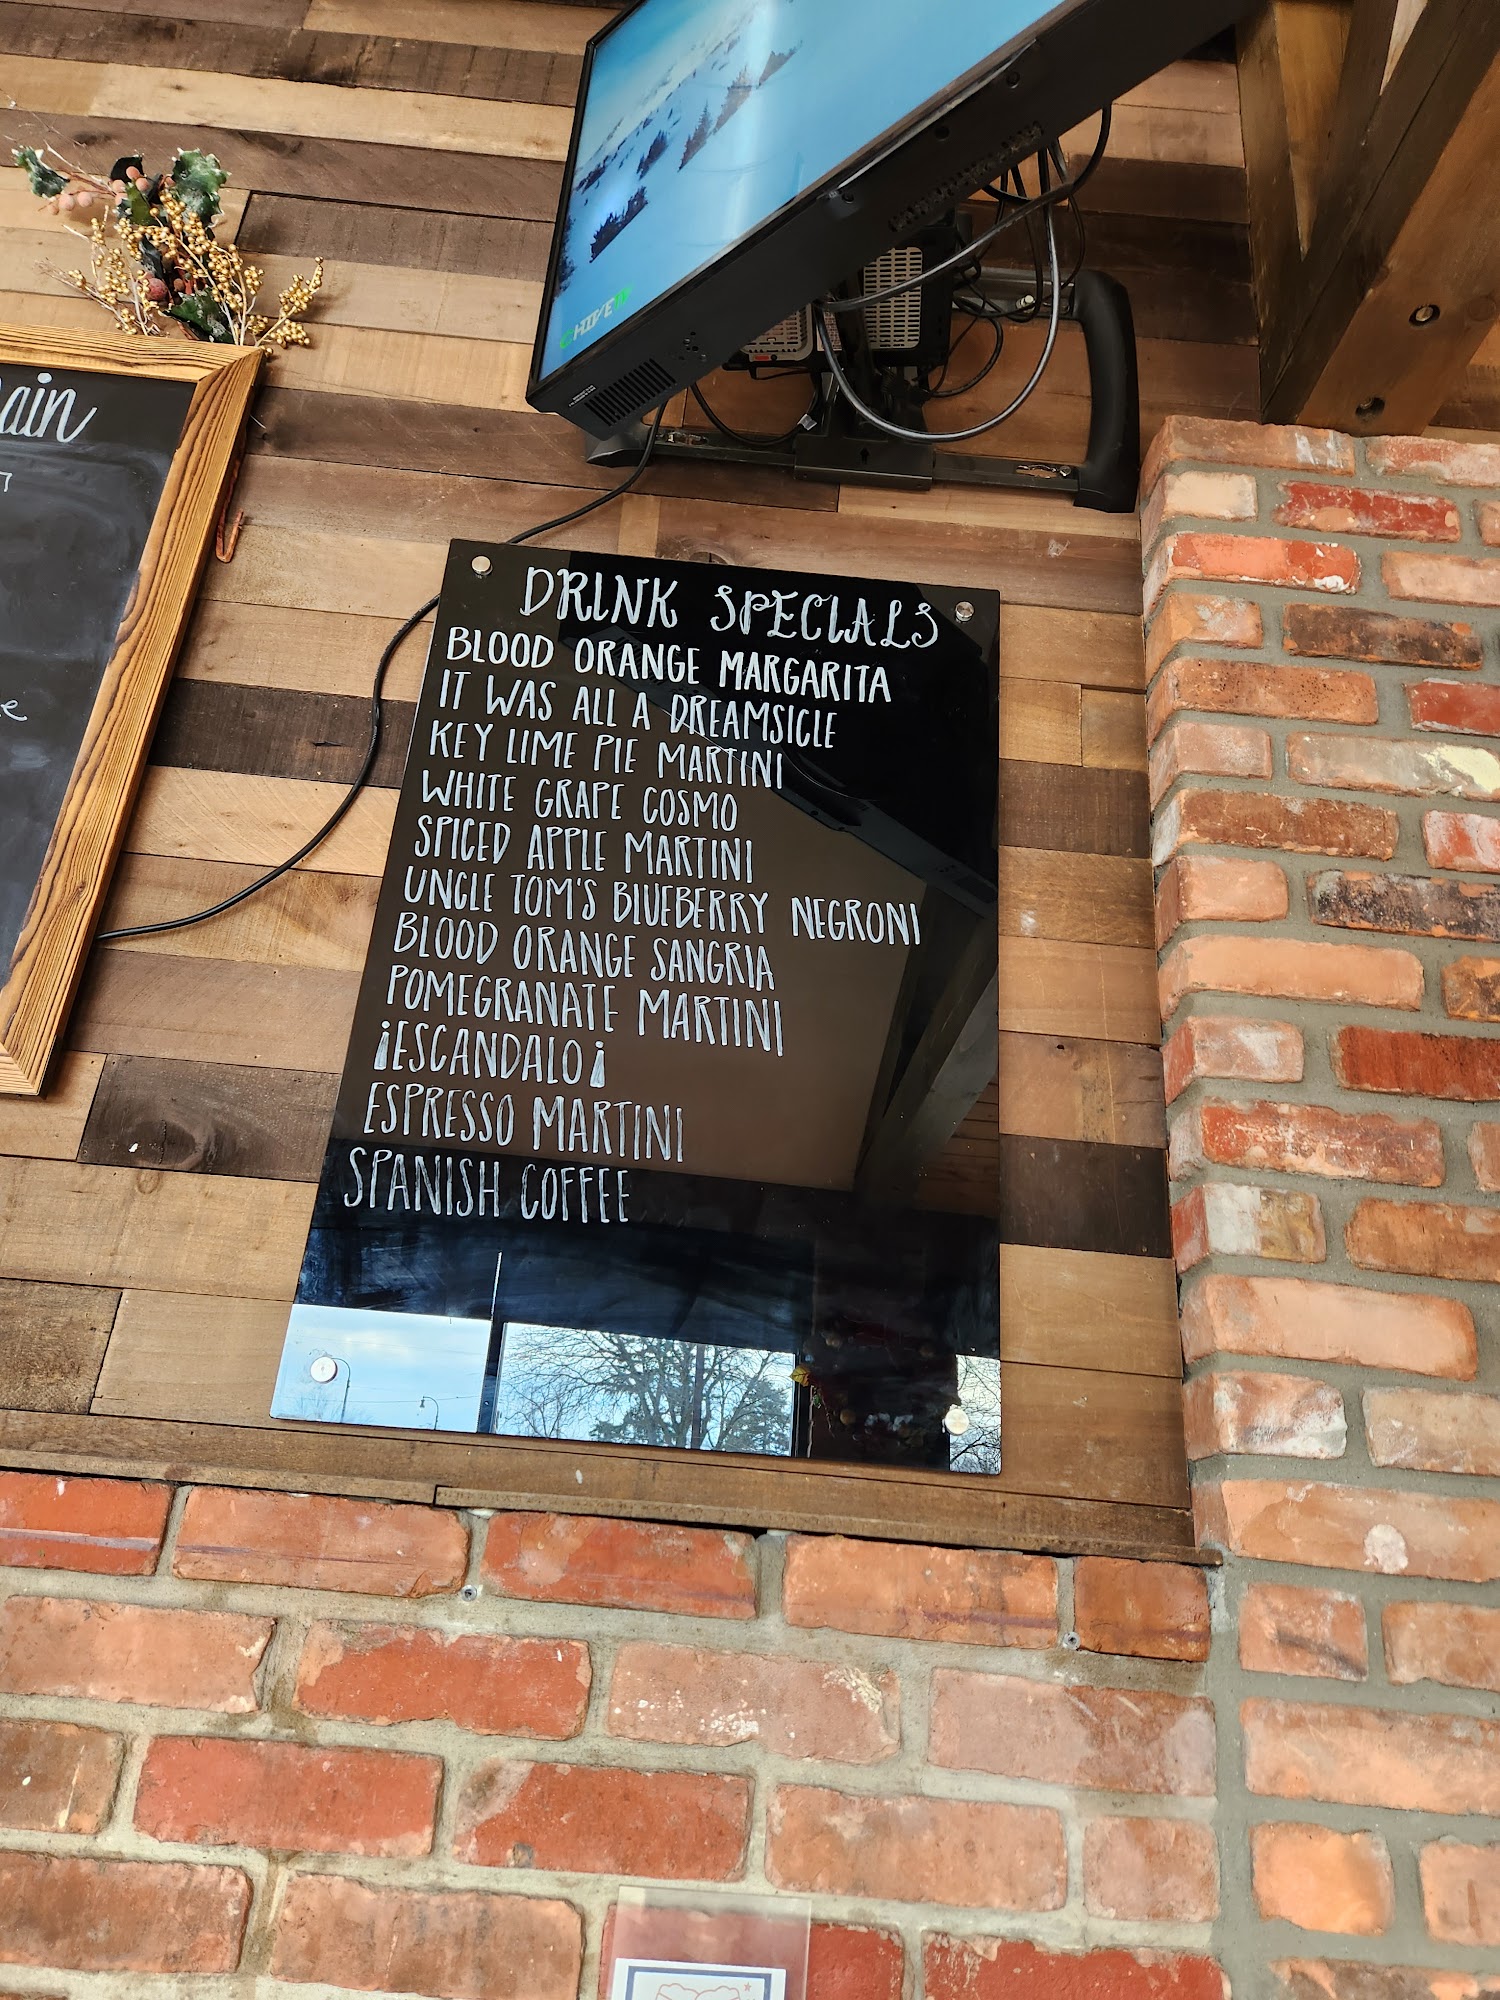 CHIVETV
DRINK SPECIALS
BLOOD ORANGE MARGARITA
IT WAS ALL A DREAMSICLE
KEY LIME PIE MARTINI
WHITE GRAPE COSMO
SPICED APPLE MARTINI
UNCLE TOM'S BLUEBERRY NEGRONI
BLOOD ORANGE SANGRIA
POMEGRANATE MARTINI
¡ESCANDALO¡
ESPRESSO MARTINI
SPANISH COFFEE